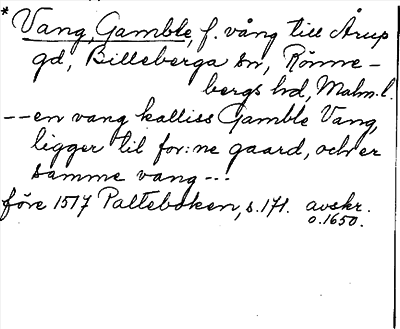 * Vang, Gamble, f. vång till Årup
gd, Billeberga sn, Rönne-
bergs hd, Malm.l.
--en vang kalliss Gamble Vang,
ligger til for:ne gaard, och er
samme vang---
före 1517 Palteboken, s.171. avskr.
o.1650.